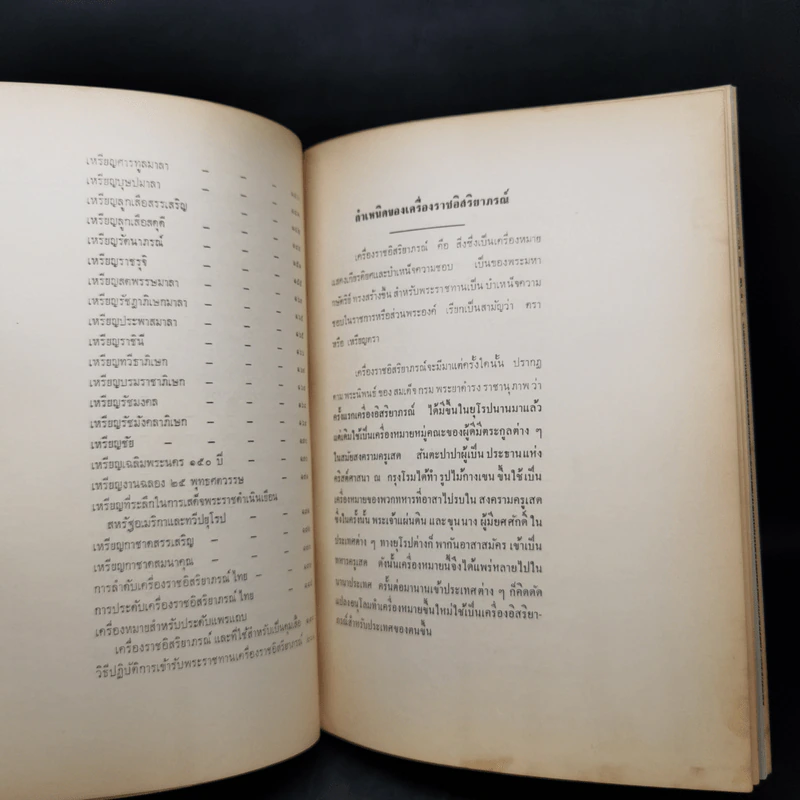 เหรียญศารทูลมาลา – – –
เหรียญบุษปมาลา – – –
เหรียญลูกเสือสรรเสริญ – –
เหรียญลูกเสือสดุดี – – –
เหรียญรัตนาภรณ์ – – –
เหรียญราชรุจิ – – –
เหรียญสตพรรษมาลา – –
เหรียญรัชฎาภิเษกมาลา – –
เหรียญประพาสมาลา – –
เหรียญราชินี – – –
เหรียญทวีธาภิเษก – –
เหรียญบรมราชาภิเษก – –
เหรียญรัชมงคล – – –
เหรียญรัชมังคลาภิเษก – –
เหรียญชัย – – – –
เหรียญเฉลิมพระนคร ๑๕๐ ปี – –
เหรียญงานฉลอง ๒๕ พุทธศตวรรษ –
เหรียญที่ระลึกในการเสด็จพระราชดำเนินเยือน
สหรัฐอเมริกาและทวีปยุโรป – –
เหรียญกาชาดสรรเสริญ – –
เหรียญกาชาดสมนาคุณ – –
การลำดับเครื่องราชอิสริยาภรณ์ไทย –
การประดับเครื่องราชอิสริยาภรณ์ไทย –
เครื่องหมายสำหรับประดับแพรแถบ
เครื่องราชอิสริยาภรณ์ และที่ใช้สำหรับเป็นดุมเสื้อ
วิธีปฏิบัติการเข้ารับพระราชทานเครื่องราชอิสริยาภรณ์
กำเหนิดของเครื่องราชอิสริยาภรณ์
เครื่องราชอิสริยาภรณ์ คือ สิ่งซึ่งเป็นเครื่องหมาย
แสดงเกียรติยศและบำเหน็จความชอบ เป็นของพระมหา
กษัตริย์ ทรงสร้างขึ้น สำหรับพระราชทานเป็น บำเหน็จความ
ชอบในราชการหรือส่วนพระองค์ เรียกเป็นสามัญว่า ตรา
หรือ เหรียญตรา
เครื่องราชอิสริยาภรณ์จะมีมาแต่ครั้งใดนั้น ปรากฏ
ตาม พระนิพนธ์ ของ สมเด็จ กรม พระยาดำรง ราชานุภาพ ว่า
ครั้งแรกเครื่องอิสริยาภรณ์ ได้มีขึ้นในยุโรปนานมาแล้ว
แต่เดิมใช้เป็นเครื่องหมายหมู่คณะของผู้ดีมีตระกูลต่าง ๆ
ในสมัยสงครามครูเสด สันตะปาปาผู้เป็น ประธานแห่ง
คริสต์ศาสนา ณ กรุงโรมได้ทำ รูปไม้กางเขน ขึ้นใช้เป็น
เครื่องหมายของพวกทหารที่อาสาไปรบใน สงครามครูเสด
ซึ่งในครั้งนั้น พระเจ้าแผ่นดิน และขุนนาง ผู้มียศศักดิ์ ใน
ประเทศต่าง ๆ ทางยุโรปต่างก็ พากันอาสาสมัคร เข้าเป็น
ทหารครูเสด ดังนั้นเครื่องหมายนี้จึงได้แพร่หลายไปใน
นานาประเทศ ครั้นต่อมานานเข้าประเทศต่าง ๆ ก็คิดดัด
แปลงอนุโลมทำเครื่องหมายขึ้นใหม่ใช้เป็นเครื่องอิสริยา-
ภรณ์สำหรับประเทศของตนขึ้น